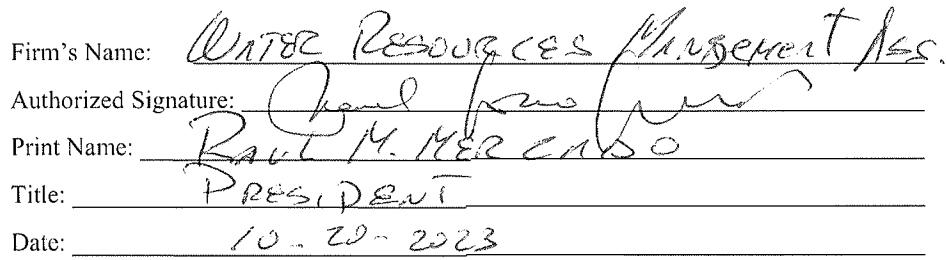 Firm's Name: WATER RESOURCES MANAGEMENT ASS.
Authorized Signature:
Print Name: RAUL M. MERCADO
Title: PRESIDENT
Date: 10-20-2023